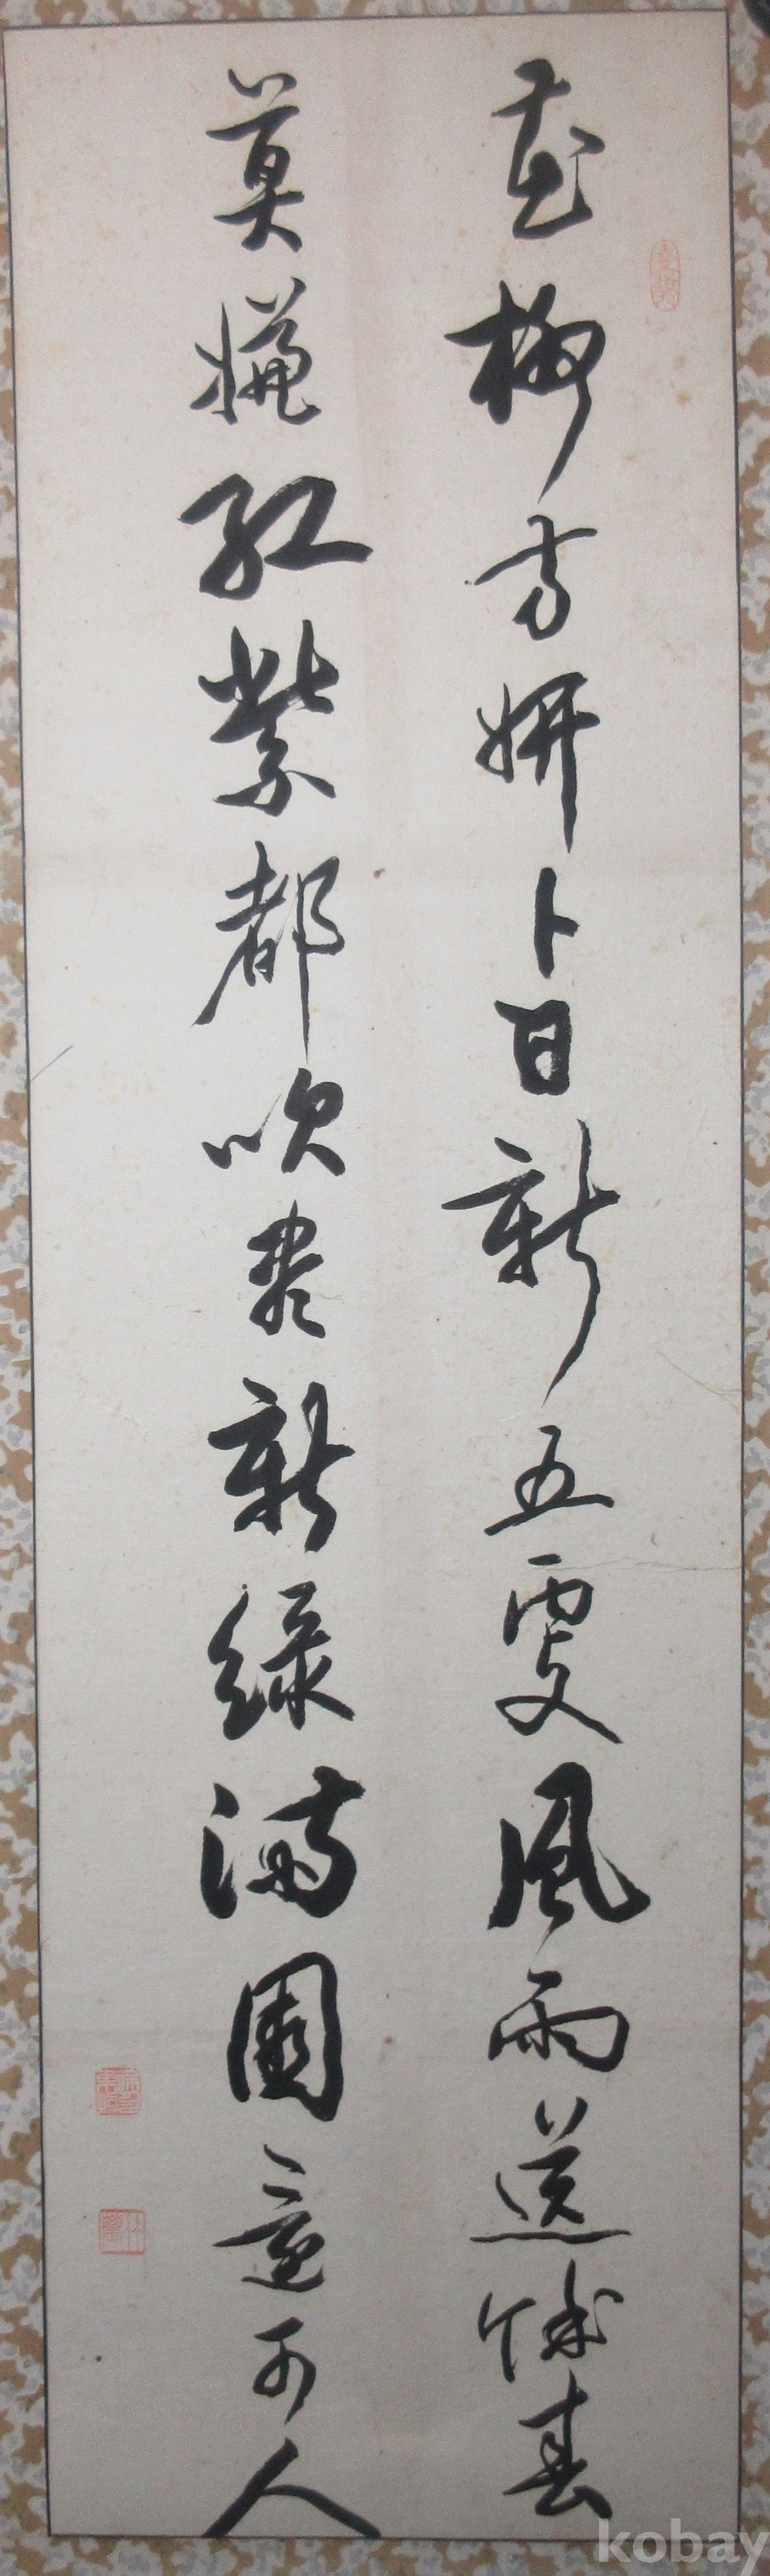 花柳方妍卜日新五更風雨送餘春
莫嫌紅紫都吹盡新緑満園還可人
kobay